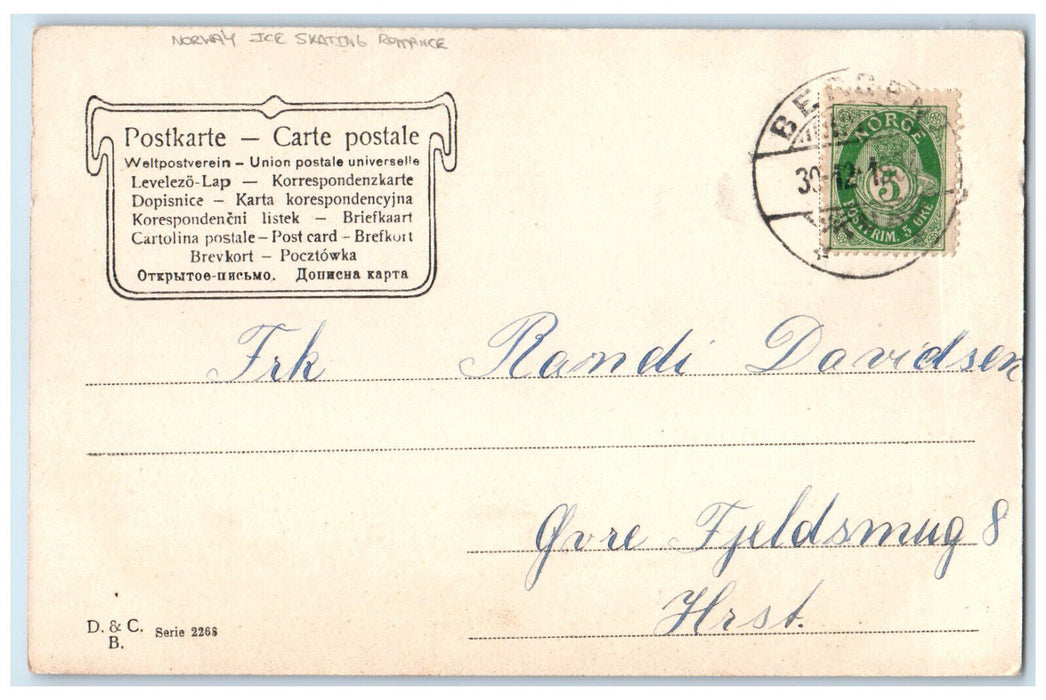 NORWAY ICE SKATING ROMANCE
Postkarte — Carte postale
Weltpostverein – Union postale universelle
Levelező-Lap — Korrespondenzkarte
Dopisnice – Karta korespondencyjna
Korespondenčni listek — Briefkaart
Cartolina postale – Post card – Brefkort
Brevkort — Pocztówka
Открытое-письмо. Дописна карта
BERGEN
30-12-1
NORGE
5
POSTFRIM. 5 ØRE
Frk Randi Davidsen
Øvre Fjeldsmug 8
Hrst.
D. & C.
B.
Serie 2268